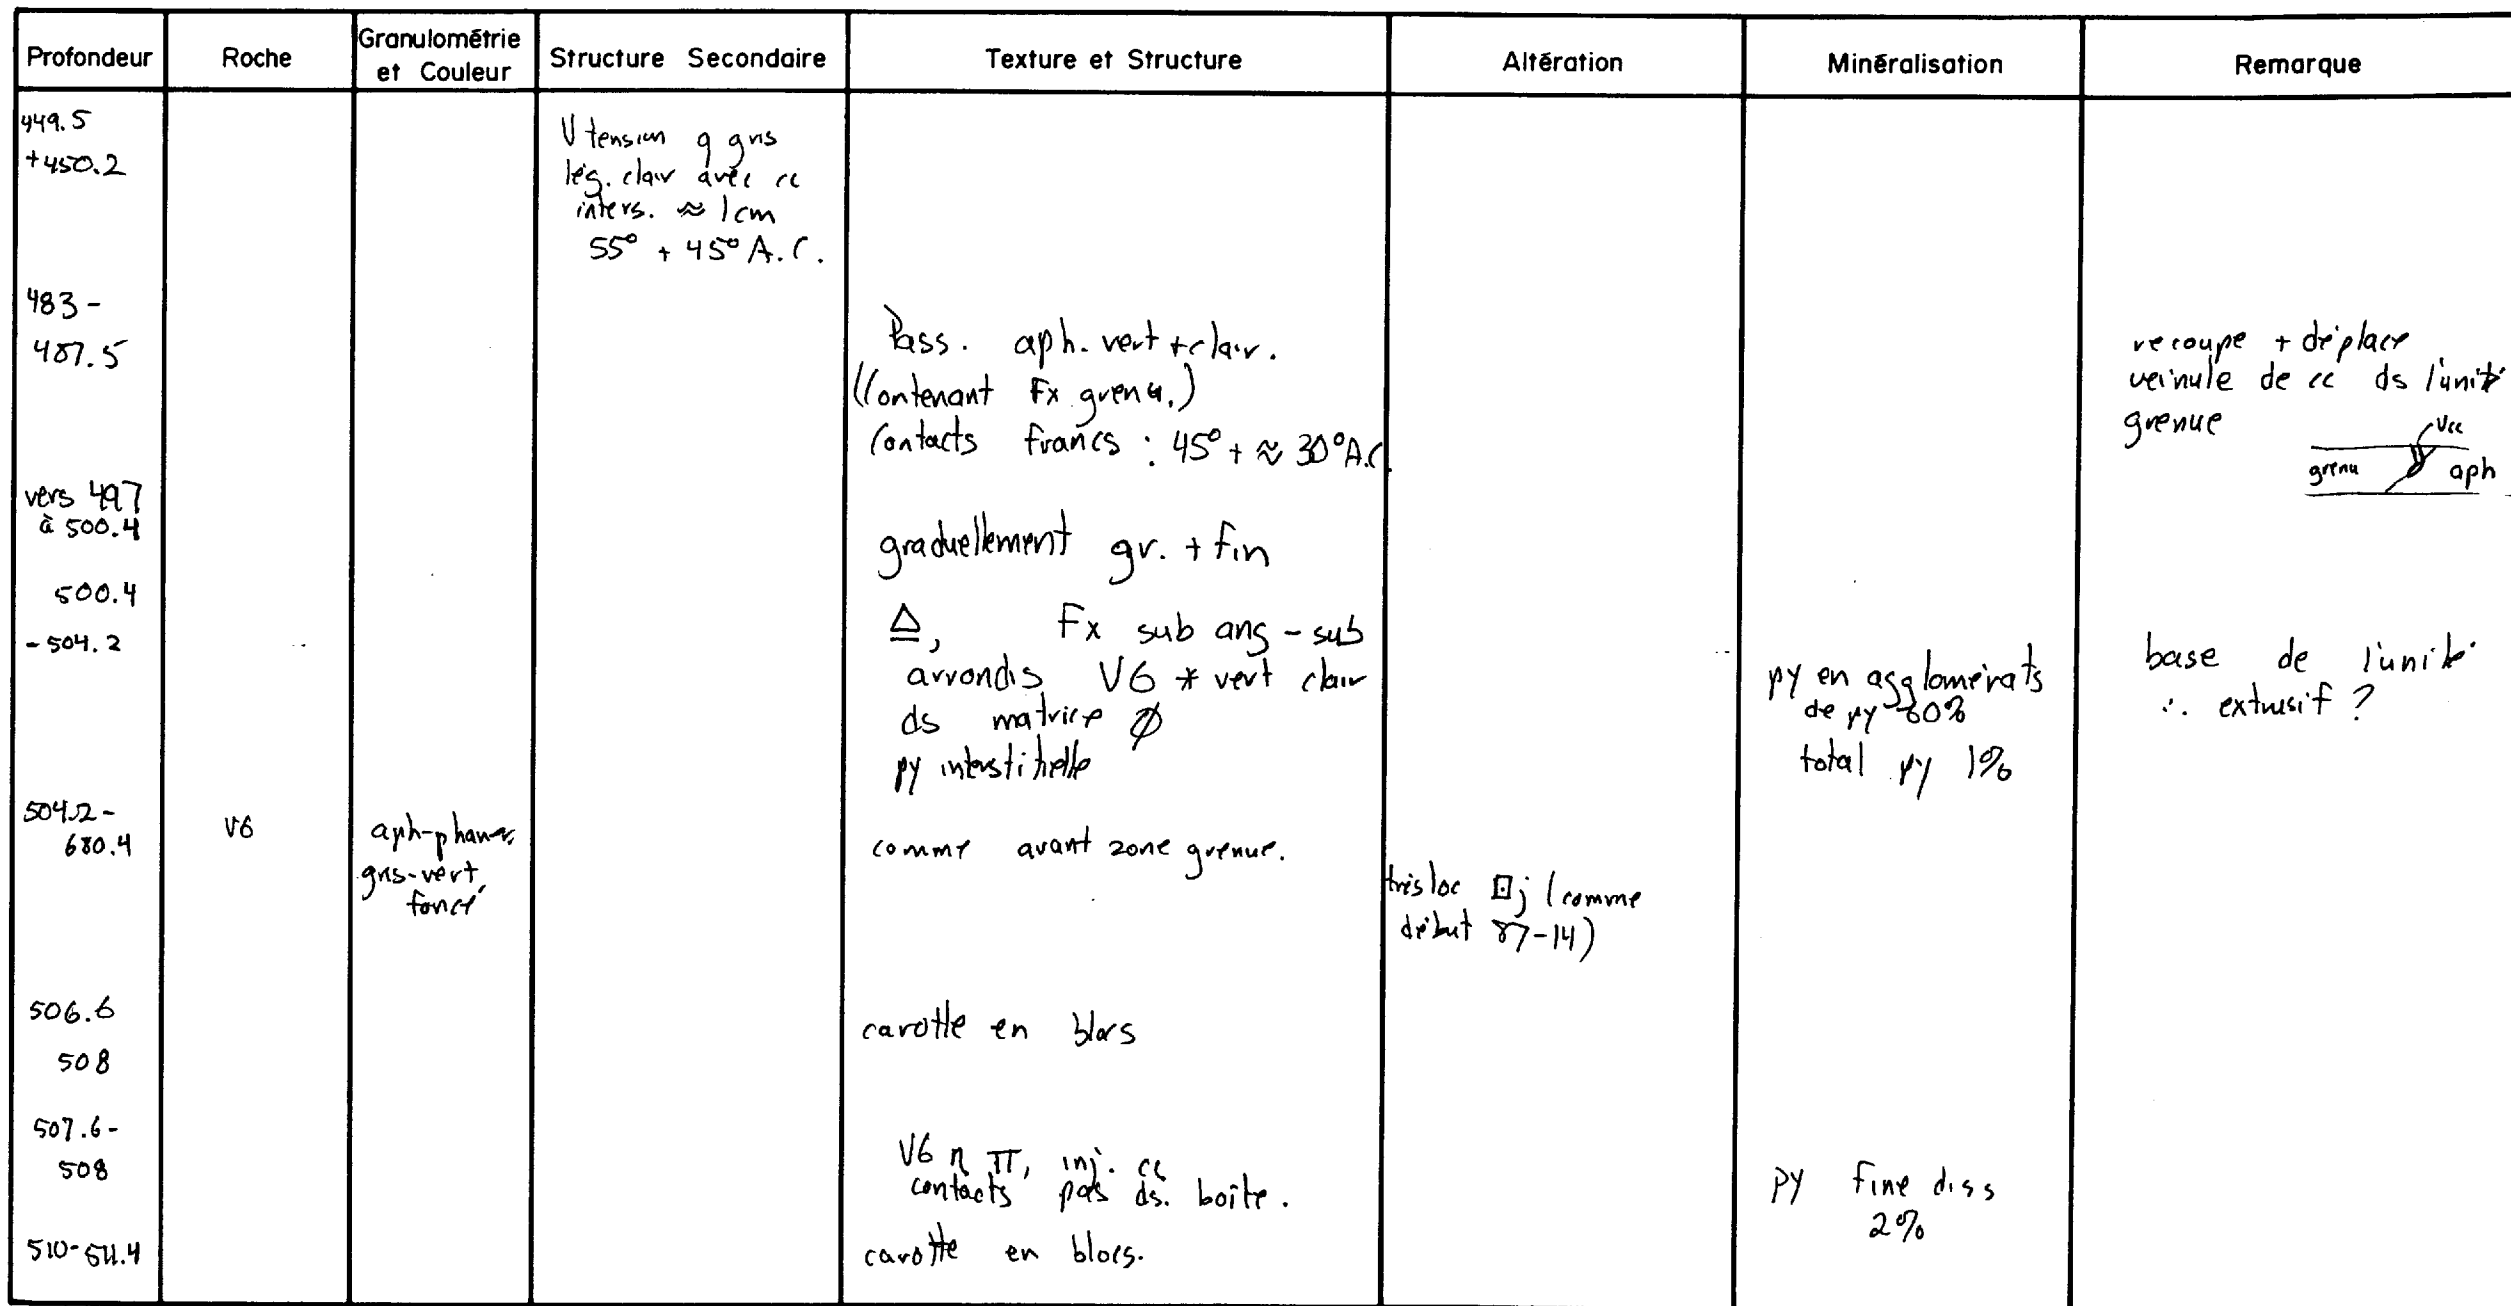 Profondeur Roche Granulométrie et Couleur Structure Secondaire Texture et Structure Altération Minéralisation Remarque
449.5
+450.2
V tension q gris
lég. clair avec cc
inters. ≈ 1cm
55° + 45° A.C.
483 -
487.5
Pass. aph. vert + clair.
(Contenant Fx grenu.)
Contacts francs : 45° + ≈ 30° A.C.
recoupe + déplace
veinule de cc ds l'unité
grenue
Vcc
grenu aph
vers 497
à 500.4
graduellement gr. + fin
500.4
- 504.2
△, Fx sub ang - sub
arrondis V6 * vert clair
ds matrice ∅
py interstitielle
py en agglomérats
de py 60%
total py 1%
base de l'unité
∴ extrusif ?
504.2 -
680.4
V6
aph-phaner.
gris-vert
foncé
comme avant zone grenue.
très loc ⊡j (comme
début 87-14)
506.6
508
carotte en blocs
507.6 -
508
V6 π, inj. cc
contacts pas ds. boîte.
py fine diss
2%
510-511.4
carotte en blocs.